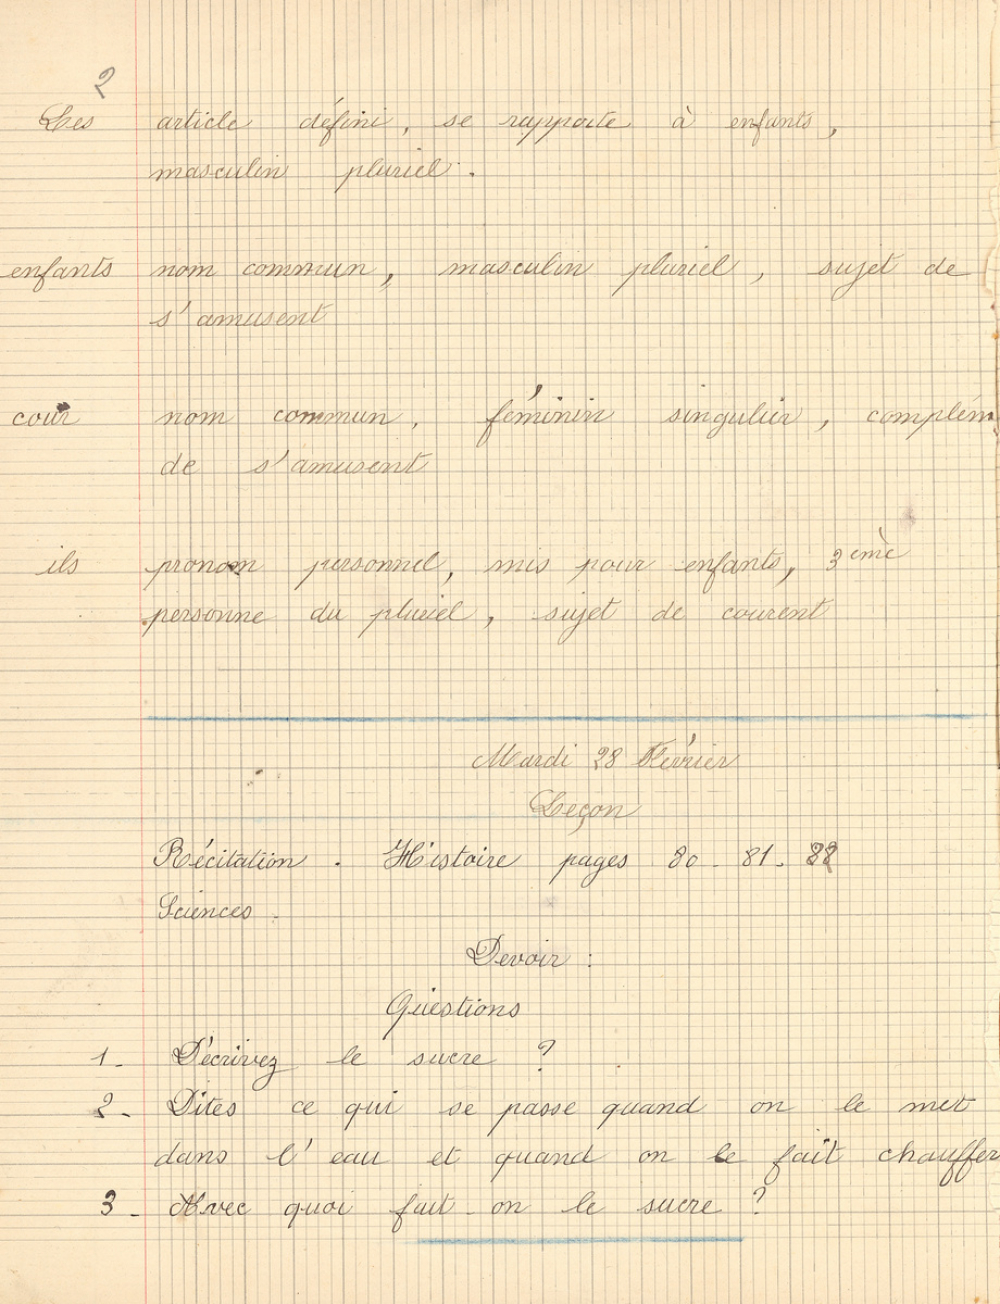 2
Les article défini, se rapporte à enfants,
masculin pluriel.
enfants nom commun, masculin pluriel, sujet de
s'amusent
cour nom commun, féminin singulier, complém
de s'amusent
ils pronom personnel, mis pour enfants, 3ème
personne du pluriel, sujet de courent
Mardi 28 Février
Leçon
Récitation. Histoire pages 80 - 81 - 82
Sciences.
Devoir :
Questions
1- Décrivez le sucre ?
2- Dites ce qui se passe quand on le met
dans l'eau et quand on le fait chauffer
3- Avec quoi fait-on le sucre ?